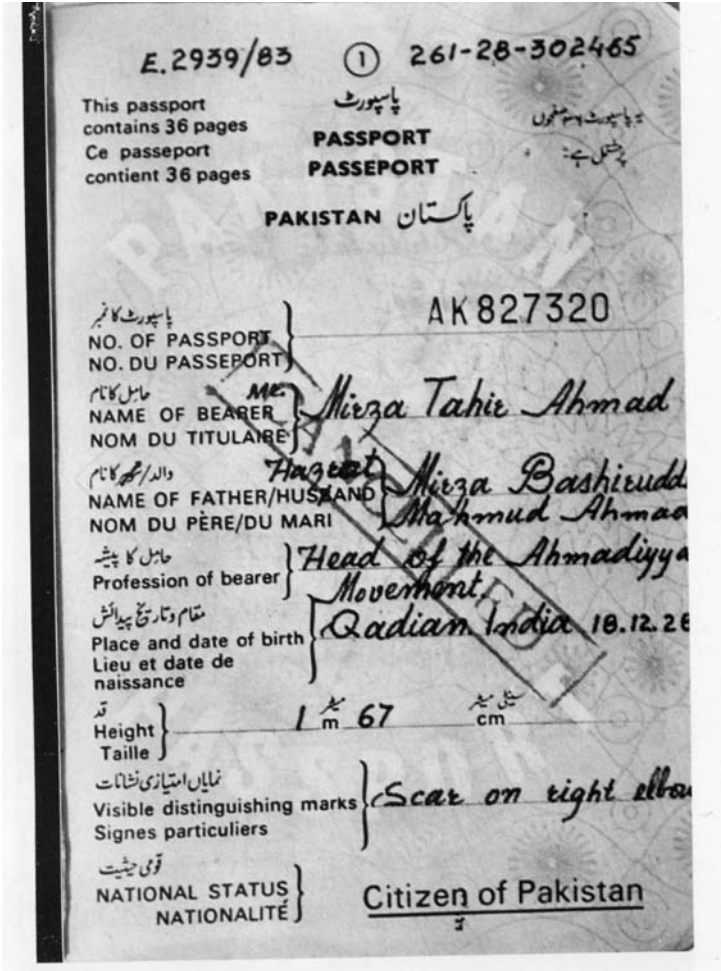 E.2939/83 ① 261-28-302465
This passport
contains 36 pages
Ce passeport
contient 36 pages
پاسپورٹ
PASSPORT
PASSEPORT
یہ پاسپورٹ ۳۶ صفحوں
پر مشتمل ہے:
PAKISTAN پاکستان
پاسپورٹ کا نمبر
NO. OF PASSPORT
NO. DU PASSEPORT
AK827320
حامل کا نام
NAME OF BEARER
NOM DU TITULAIRE
Mr. Mirza Tahir Ahmad
والد/شوہر کا نام
NAME OF FATHER/HUSBAND
NOM DU PÈRE/DU MARI
Hazrat Mirza Bashirudd
Mahmud Ahmad
حامل کا پیشہ
Profession of bearer
Head of the Ahmadiyya
Movement.
مقام و تاریخ پیدائش
Place and date of birth
Lieu et date de
naissance
Qadian India 18.12.28
قد
Height
Taille
1 میٹر m 67 سینٹی میٹر cm
نمایاں امتیازی نشانات
Visible distinguishing marks
Signes particuliers
Scar on right elbow
قومی حیثیت
NATIONAL STATUS
NATIONALITÉ
Citizen of Pakistan
CANCELLED
PAKISTAN
PASSPORT